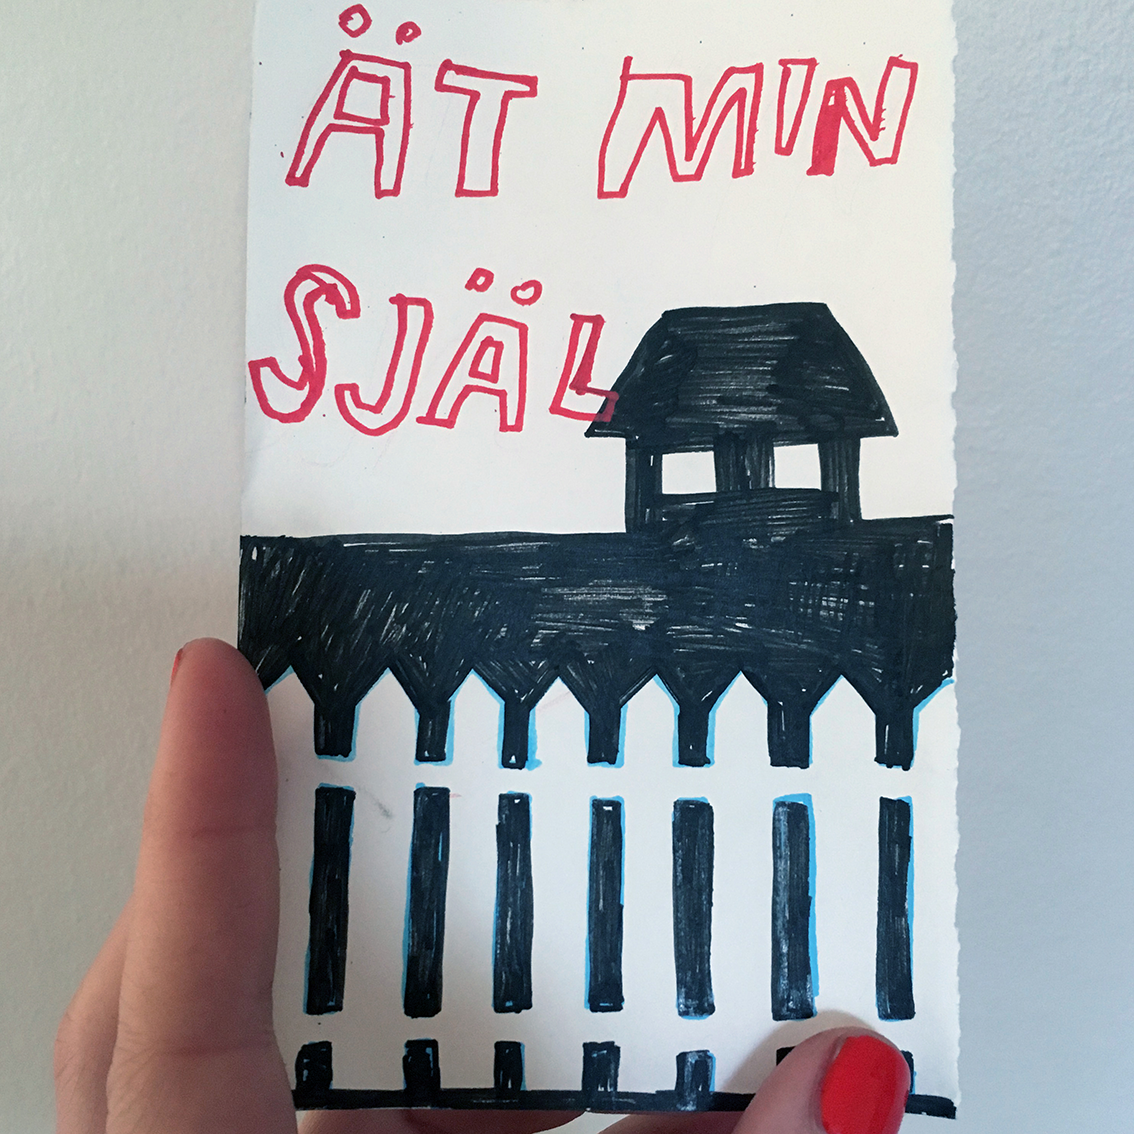 ÄT MIN
SJÄL